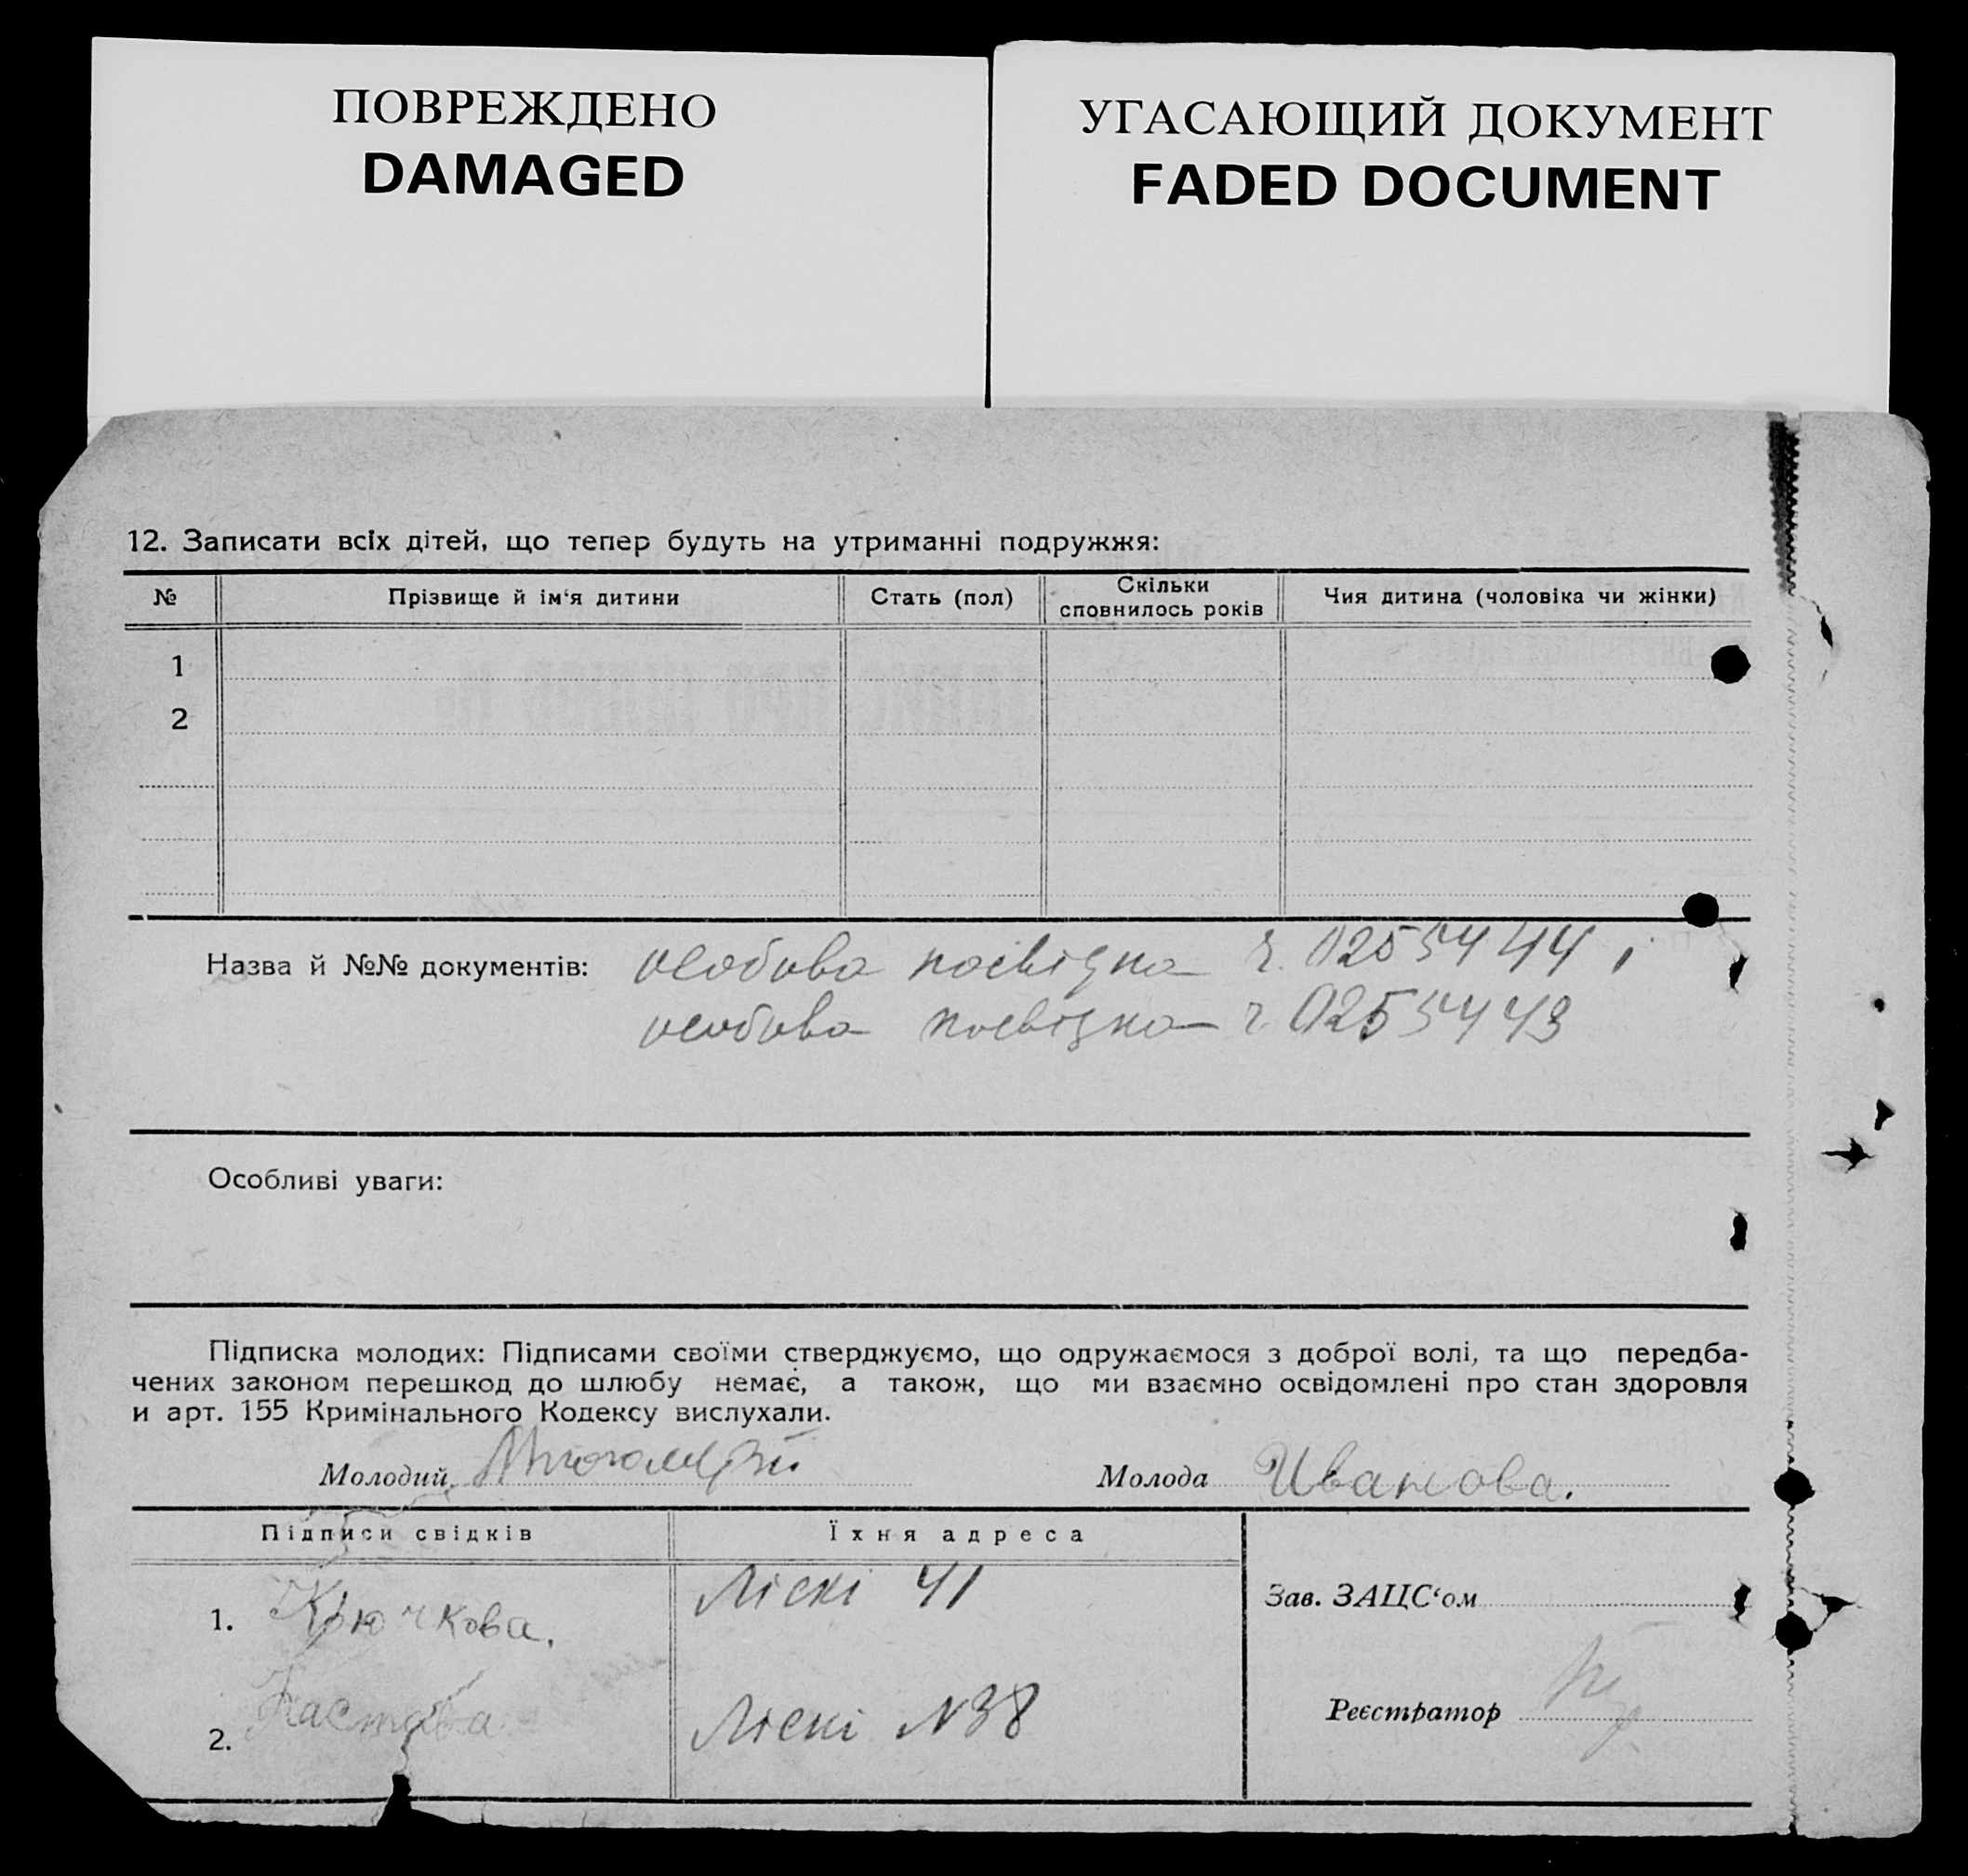 ПОВРЕЖДЕНО
DAMAGED
УГАСАЮЩИЙ ДОКУМЕНТ
FADED DOCUMENT
12. Записати всіх дітей, що тепер будуть на утриманні подружжя:
№ Прізвище й ім‘я дитини Стать (пол) Скільки сповнилось років Чия дитина (чоловіка чи жінки)
1
2
Назва й №№ документів: особова посвідка ч. 0255444 і
особова посвідка ч. 0255443
Особливі уваги:
Підписка молодих: Підписами своїми стверджуємо, що одружаємося з доброї волі, та що передба-
чених законом перешкод до шлюбу немає, а також, що ми взаємно освідомлені про стан здоровля
и арт. 155 Кримінального Кодексу вислухали.
Молодий Молода Иванова.
Підписи свідків Їхня адреса
1. Крючкова. Ліскі 41
Зав. ЗАЦС‘ом
2. Ліскі N38
Реєстратор